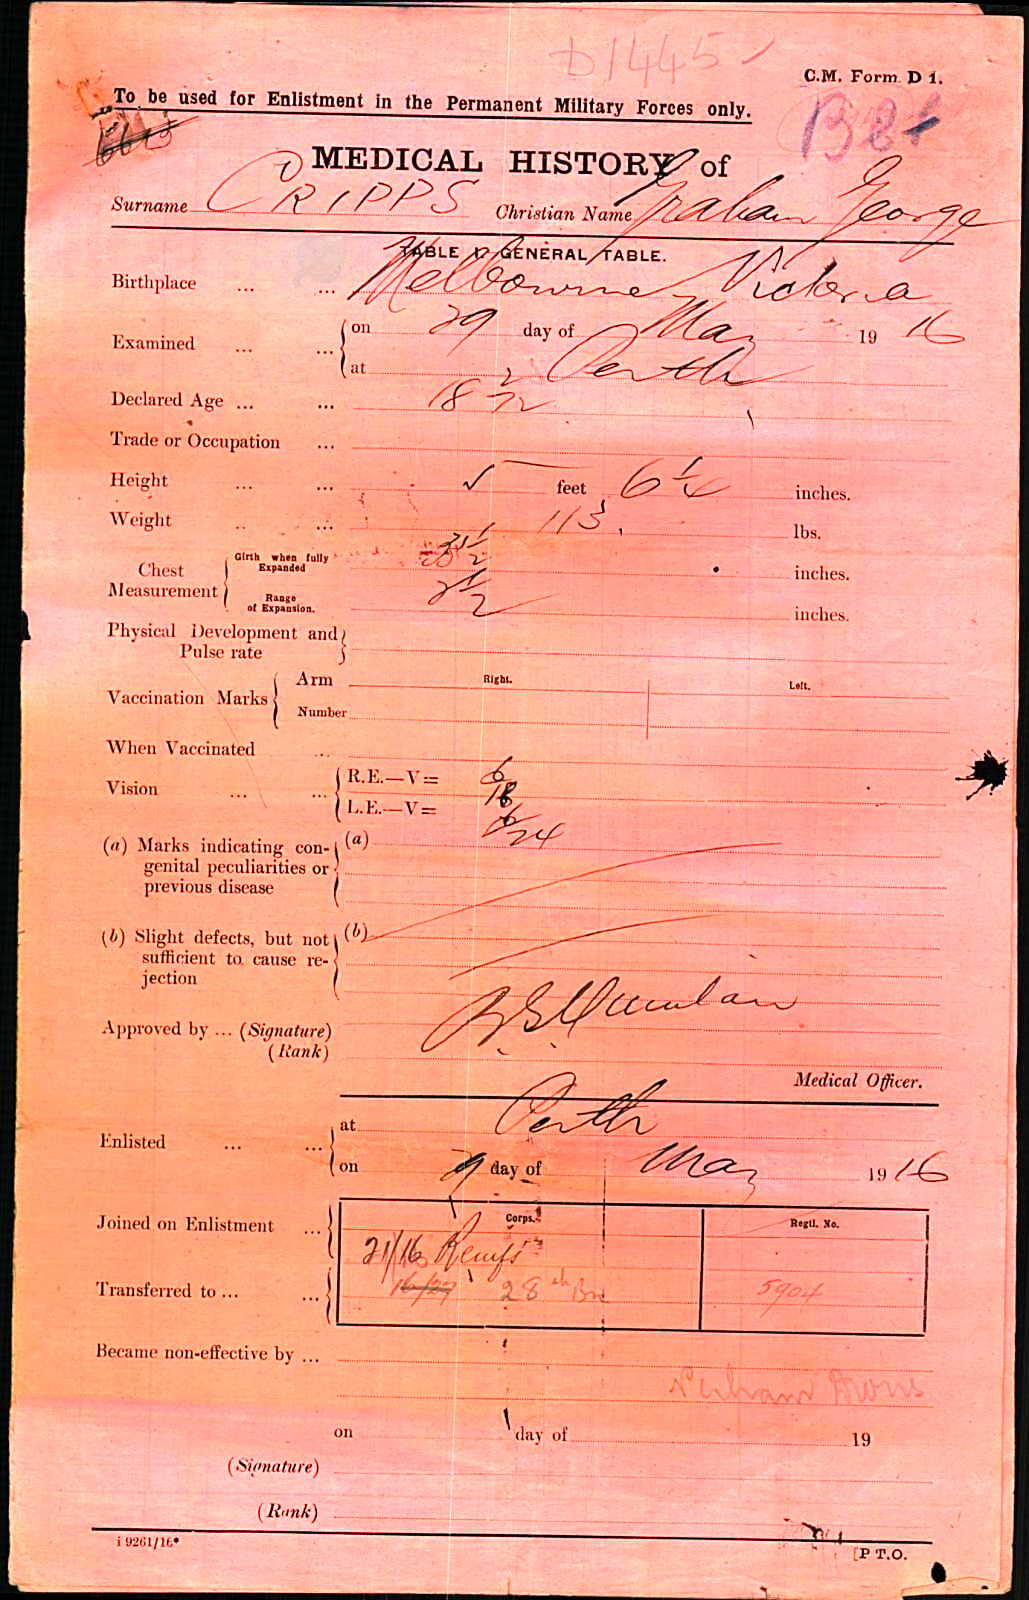 D1445
C.M. Form D 1.
To be used for Enlistment in the Permanent Military Forces only.
B2
MEDICAL HISTORY of
Surname CRIPPS Christian Name Graham George
TABLE I. GENERAL TABLE.
Birthplace ... ... Melbourne Victoria
Examined ... ... on 29 day of May 1916
at Perth
Declared Age ... ... 18 2/12
Trade or Occupation ...
Height ... ... 5 feet 6 1/4 inches.
Weight ... ... 113 lbs.
Chest Measurement Girth when fully Expanded 1/2 inches.
Range of Expansion. 2 1/2 inches.
Physical Development and Pulse rate
Vaccination Marks Arm Right. Left.
Number
When Vaccinated ...
Vision ... ... R.E.—V= 6/18
L.E.—V= 6/24
(a) Marks indicating con- (a)
genital peculiarities or
previous disease
(b) Slight defects, but not (b)
sufficient to cause re-
jection
Approved by ... (Signature)
(Rank)
Medical Officer.
Enlisted ... ... at Perth
on 9 day of May 1916
Joined on Enlistment ... Corps. Regtl. No.
21/16 Remfs
Transferred to ... ... 16/27 28th Bn 5904
Became non-effective by ...
Perham Downs
on day of 19
(Signature)
(Rank)
i 9261/16*
[P T.O.